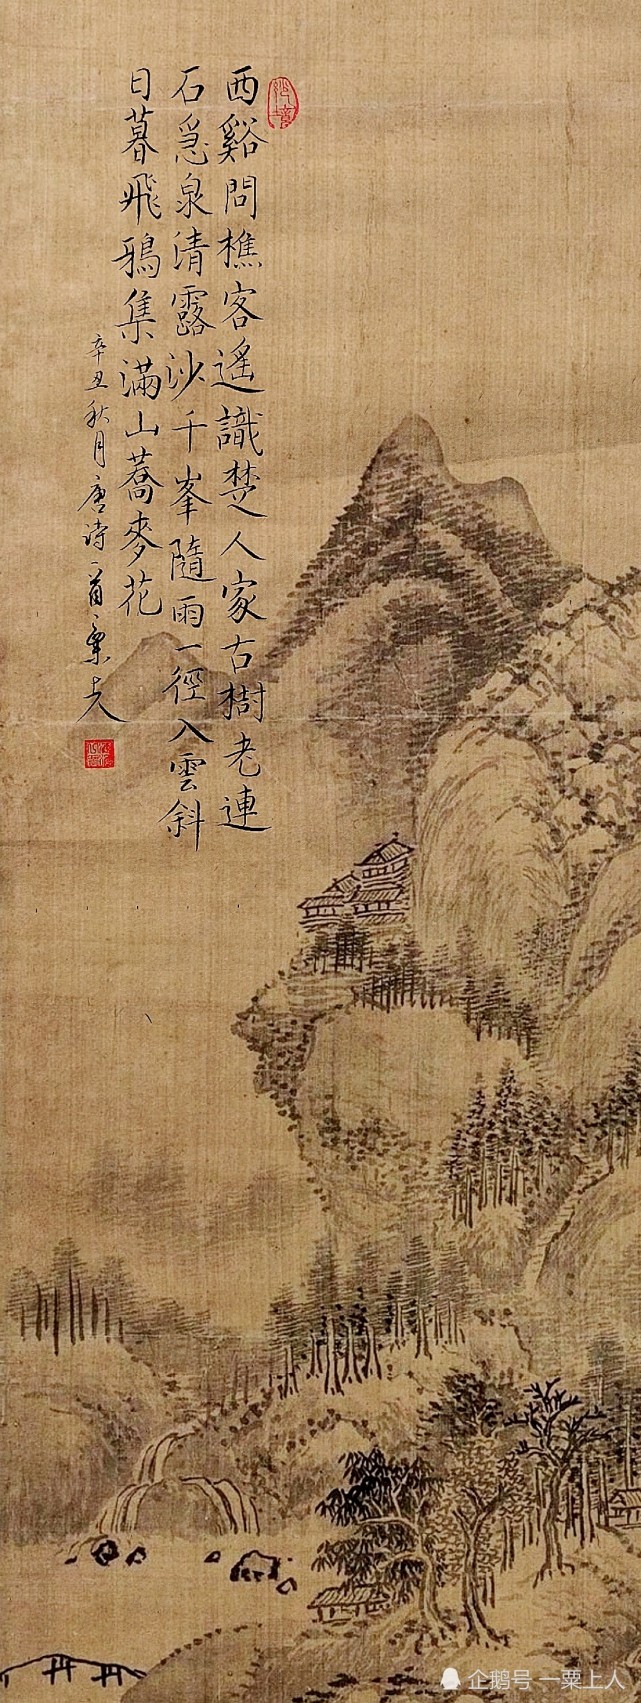 西谿問樵客遙識楚人家古樹老連
石急泉清露沙千峯隨雨一徑入雲斜
日暮飛鴉集滿山蕎麥花
辛丑秋月唐诗一首
企鹅号 一粟上人